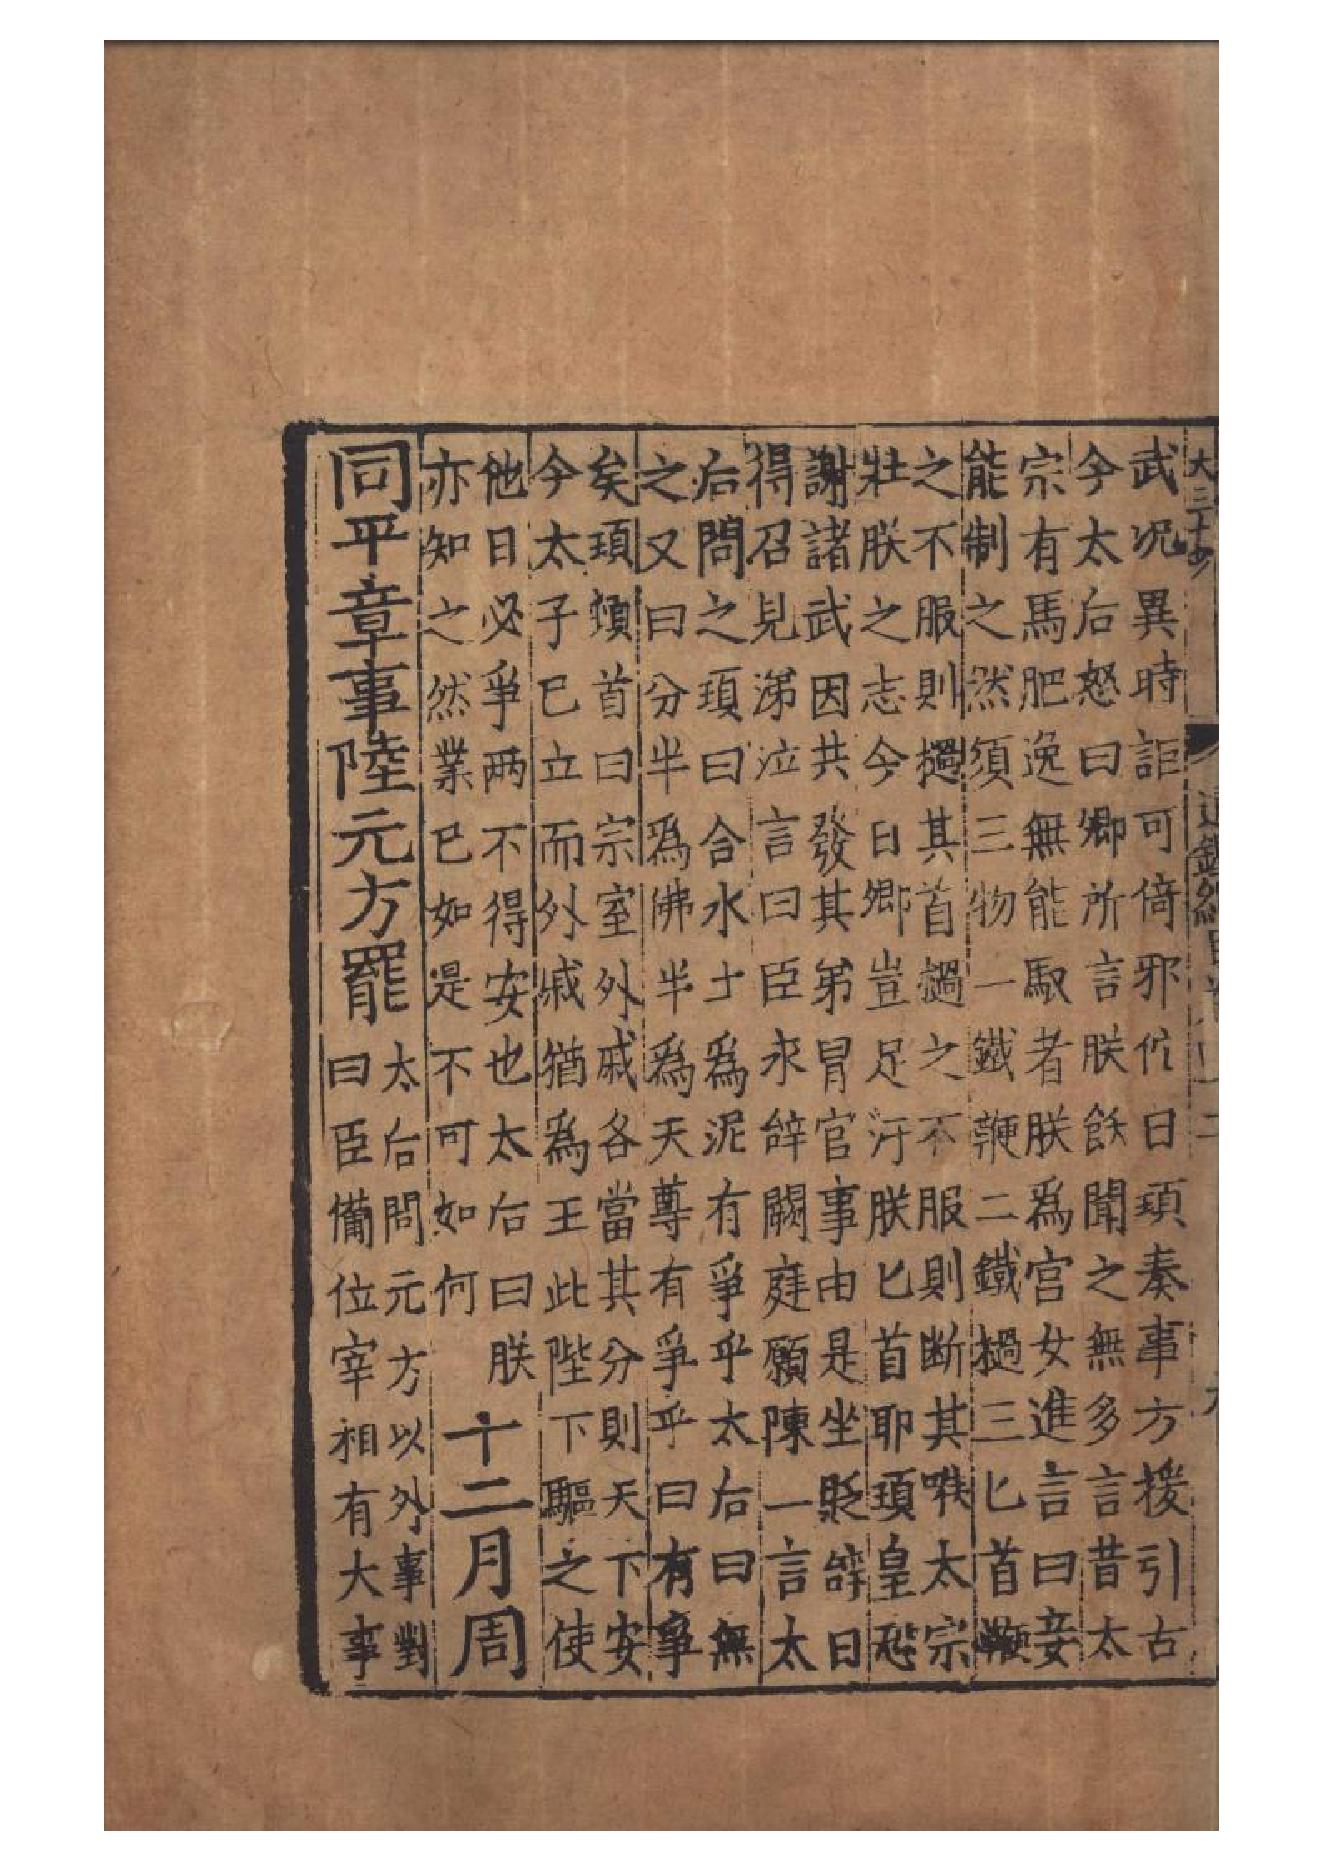 大三十
武況異時詎可倚邪佗日頊奏事方援引古
今太后怒曰卿所言朕飫聞之無多言昔太
宗有馬肥逸無能馭者朕爲宮女進言曰妾
能制之然須三物一鐵鞭二鐵檛三匕首鞭
之不服則檛其首檛之不服則断其喉太宗
壯朕之志今日卿豈足汙朕匕首耶頊皇恐
謝諸武因共發其弟冒官事由是坐貶辝日
得召見涕泣言曰臣永辝闕庭願陳一言太
后問之頊曰合水土爲泥有爭乎太后曰無
之又曰分半爲佛半爲天尊有爭乎曰有爭
矣頊頓首曰宗室外戚各當其分則天下安
今太子已立而外戚猶爲王此陛下驅之使
他日必爭两不得安也太后曰朕
亦知之然業已如是不可如何
十二月周
同平章事陸元方罷
太后問元方以外事對
曰臣備位宰相有大事